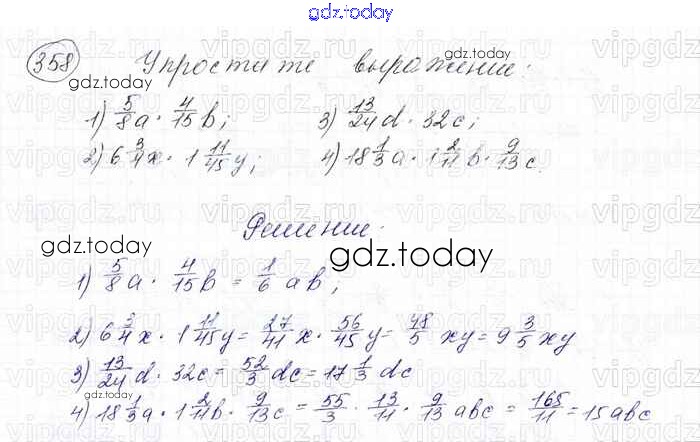 gdz.today
358 Упростите выражение:
gdz.today
1) 5/8 a · 4/15 b; 3) 13/24 d · 32c;
2) 6 3/4 x · 1 11/45 y; 4) 18 1/3 a · 1 2/11 b · 9/13 c.
Решение:
gdz.today
gdz.today
1) 5/8 a · 4/15 b = 1/6 ab;
2) 6 3/4 x · 1 11/45 y = 27/41 x · 56/45 y = 48/5 xy = 9 3/5 xy
3) 13/24 d · 32c = 52/3 dc = 17 1/3 dc
4) 18 1/3 a · 1 2/11 b · 9/13 c = 55/3 · 13/11 · 9/13 abc = 165/11 = 15 abc